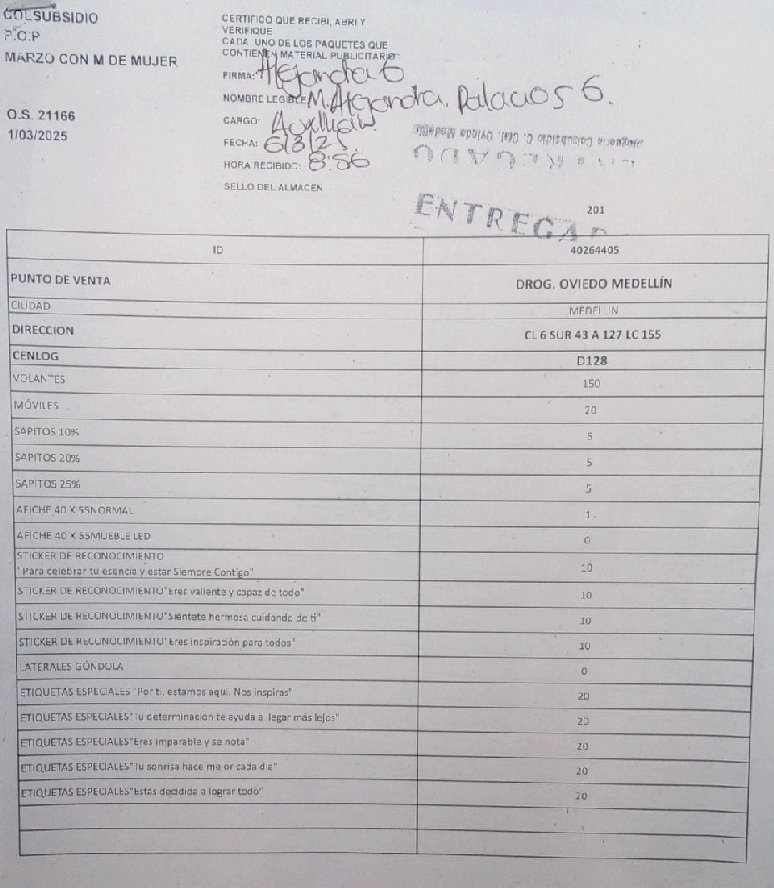 COLSUBSIDIO
P.O.P
MARZO CON M DE MUJER
O.S. 21166
1/03/2025
CERTIFICO QUE RECIBI, ABRI Y
VERIFIQUE
CADA UNO DE LOS PAQUETES QUE
CONTIENEN MATERIAL PUBLICITARIO
FIRMA: Alejandra G
NOMBRE LEGIBLE M. Alejandra. Palacios G.
CARGO: Auxiliar.
FECHA: 6/3/25.
HORA RECIBIDO: 8:56
SELLO DEL ALMACEN
Drogueria Colsubsidio C. Cial. Oviedo Medellin
ENTREGAD
201
ID 40264405
PUNTO DE VENTA DROG. OVIEDO MEDELLÍN
CIUDAD MEDELLIN
DIRECCION CL 6 SUR 43 A 127 LC 155
CENLOG D128
VOLANTES 150
MÓVILES 20
SAPITOS 10% 5
SAPITOS 20% 5
SAPITOS 25% 5
AFICHE 40 X 55 NORMAL 1
AFICHE 40 X 55 MUEBLE LED 0
STICKER DE RECONOCIMIENTO
"Para celebrar tu esencia y estar Siempre Contigo" 10
STICKER DE RECONOCIMIENTO "Eres valiente y capaz de todo" 10
STICKER DE RECONOCIMIENTO "Siéntete hermosa cuidando de ti" 10
STICKER DE RECONOCIMIENTO "Eres inspiración para todos" 10
LATERALES GÓNDOLA 0
ETIQUETAS ESPECIALES "Por ti, estamos aquí. Nos inspiras" 20
ETIQUETAS ESPECIALES "Tu determinación te ayuda a llegar más lejos" 20
ETIQUETAS ESPECIALES "Eres imparable y se nota" 20
ETIQUETAS ESPECIALES "Tu sonrisa hace mejor cada día" 20
ETIQUETAS ESPECIALES "Estás decidida a lograr todo" 20